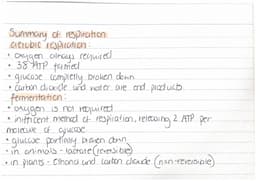 Summary of respiration
aerobic respiration:
• oxygen always required
• 38 ATP formed
• glucose completly broken down
• carbon dioxide and water are end products
fermentation:
• oxygen is not required
• inefficient method of respiration, releasing 2 ATP per
molecule of glucose
• glucose partially broken down
• in animals - lactate (reversible)
• in plants - ethanol and carbon dioxide (non-reversible)